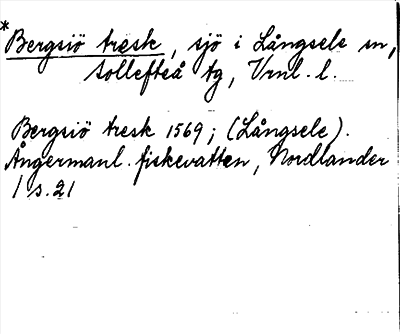 *
Bergsiö tresk, sjö i Långsele sn,
Sollefteå tg, Vrnl. l.
Bergsiö tresk 1569; (Långsele).
Ångermanl. fiskevatten, Nordlander
1 s. 21